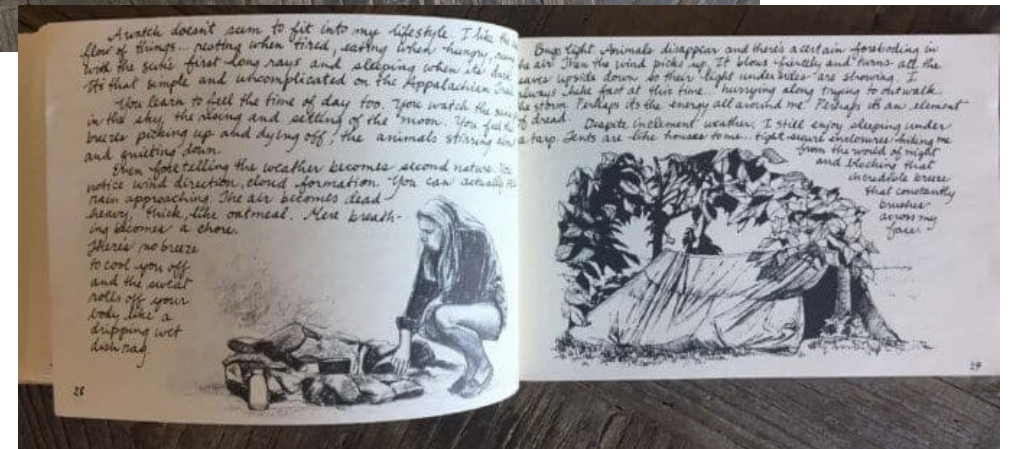 A watch doesn't seem to fit into my lifestyle. I like the
flow of things... resting when tired, eating when hungry,
with the sun's first long rays and sleeping when its dark
Its that simple and uncomplicated on the Appalachian Trail
You learn to feel the time of day too. You watch the
in the sky, the rising and setting of the moon. You feel the
breezes picking up and dying off, the animals stirring
and quieting down.
Even foretelling the weather becomes second nature. You
notice wind direction, cloud formation. You can actually
rain approaching. The air becomes dead
heavy, thick, like oatmeal. Mere breath-
ing becomes a chore.
There's no breeze
to cool you off
and the sweat
rolls off your
body like a
dripping wet
dish rag.
28
Bugs light. Animals disappear and there's a certain foreboding in
the air. Then the wind picks up. It blows fiercely and turns all the
leaves upside down so their light undersides are showing. I
always hike fast at this time... hurrying along trying to outwalk
the storm. Perhaps its the energy all around me. Perhaps its an element
of dread.
Despite inclement weather, I still enjoy sleeping under
a tarp. Tents are like houses to me... tight secure enclosures hiding me
from the world of night
and blocking that
incredible breeze
that constantly
brushes
across my
face.
29